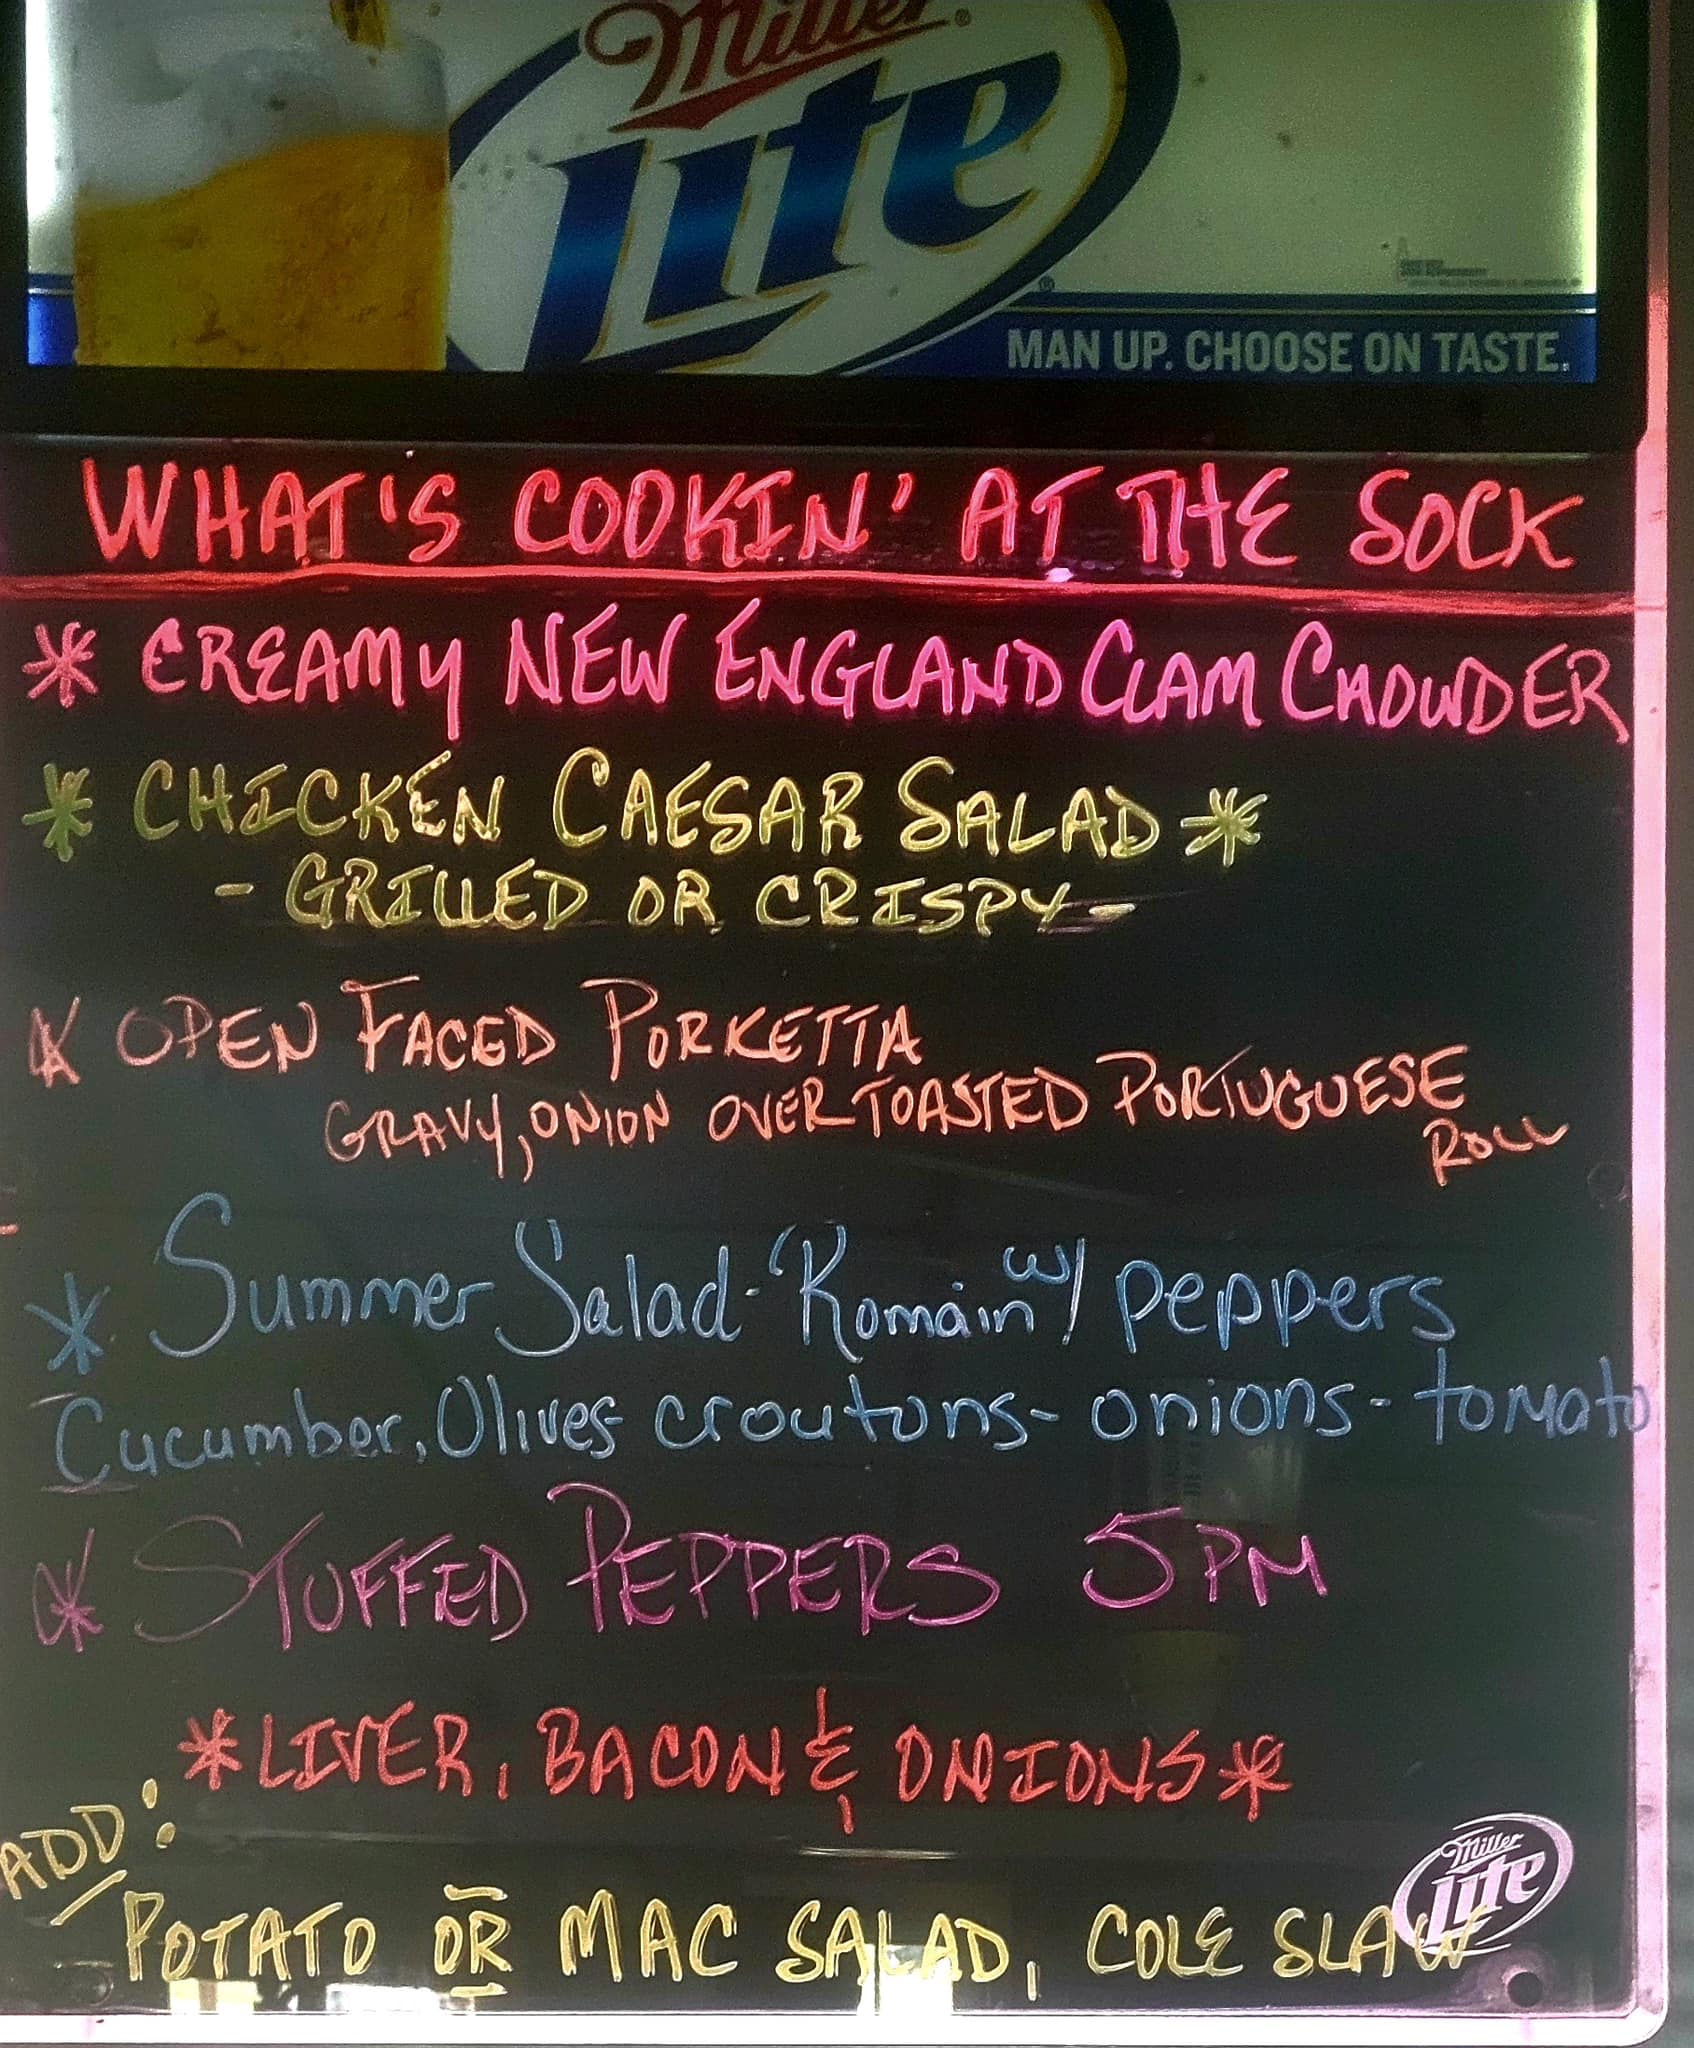 Miller
Lite
MAN UP. CHOOSE ON TASTE.
WHAT'S COOKIN' AT THE SOCK
* CREAMY NEW ENGLAND CLAM CHOWDER
* CHICKEN CAESAR SALAD *
- GRILLED OR CRISPY -
* OPEN FACED PORKETTA
GRAVY, ONION OVER TOASTED PORTUGUESE
ROLL
* Summer Salad - Romain w/ peppers
Cucumber, Olives croutons - onions - tomato
* STUFFED PEPPERS 5 PM
* LIVER, BACON & ONIONS *
ADD:
POTATO OR MAC SALAD, COLE SLAW
Miller
Lite